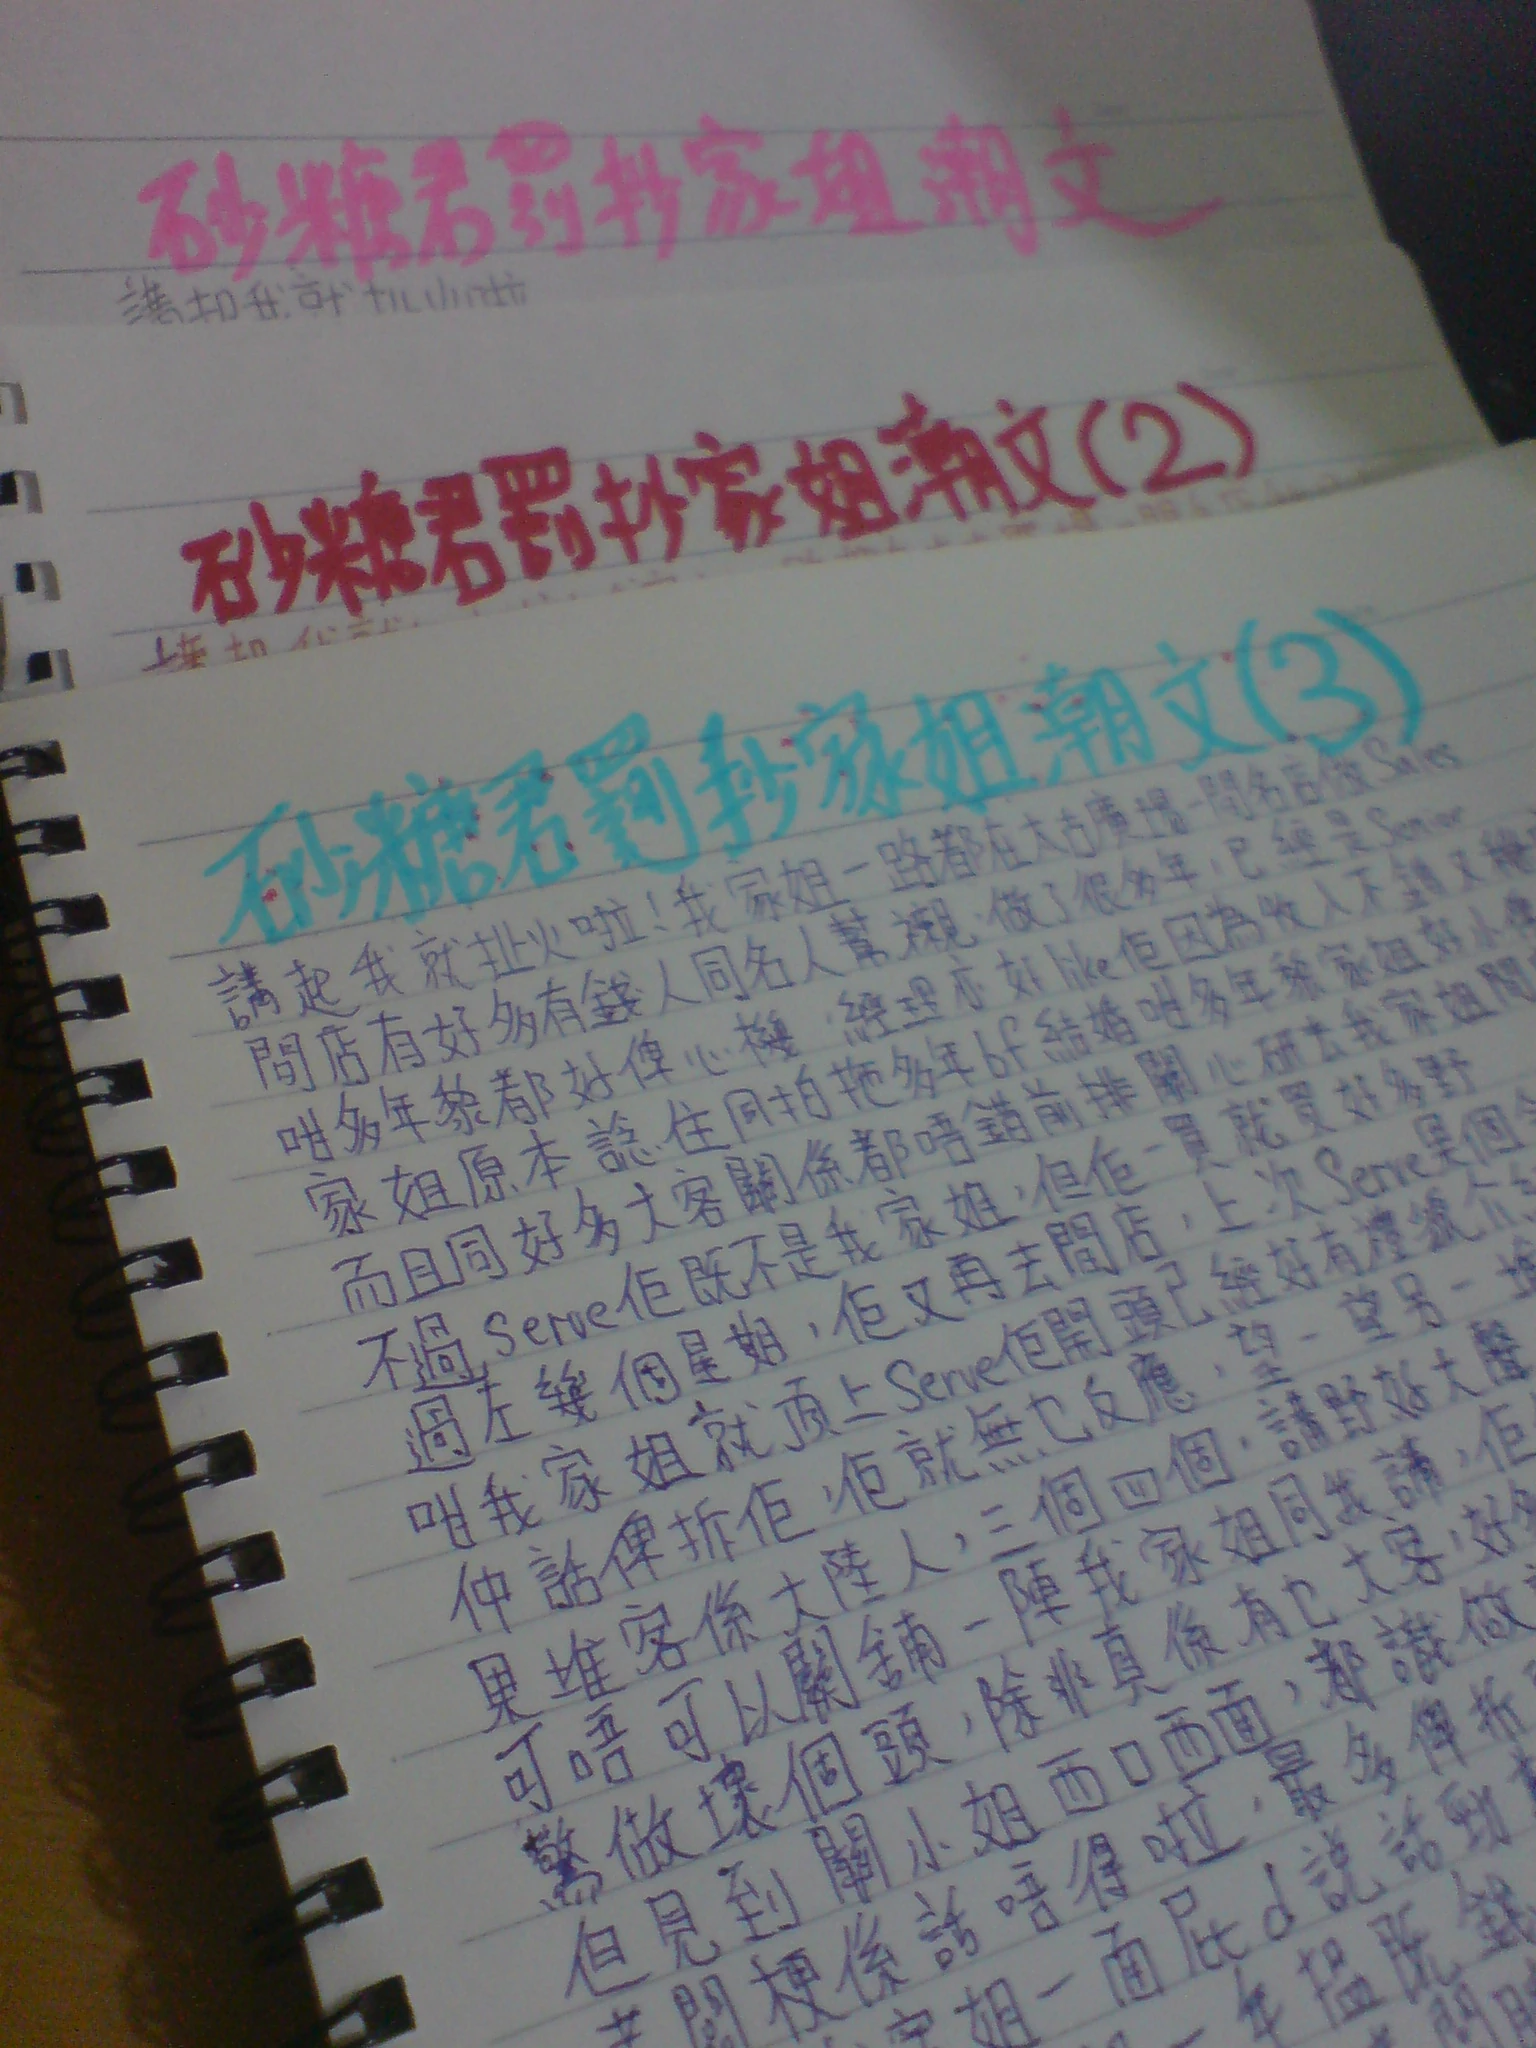 砂糖君罰抄家姐潮文
講起我就扯火啦
砂糖君罰抄家姐潮文(2)
砂糖君罰抄家姐潮文(3)
講起我就扯火啦!我家姐一路都在太古廣場一間名店做Sales
間店有好多有錢人同名人幫襯,做了很多年,已經是Senior
咁多年黎都好俾心機,經理亦好like佢因為收入不錯又穩
家姐原本諗住同拍拖多年bf結婚咁多年黎家姐好小
而且同好多大客關係都唔錯前排關心研去我家姐間
不過Serve佢既不是我家姐,但佢一買就買好多野
過左幾個星期,佢又再去間店,上次Serve果個
咁我家姐就頂上Serve佢開頭已經好有禮貌介紹
仲話俾折佢,佢就無乜反應,望一望另一堆
果堆客係大陸人,三個四個,講野好大聲
可唔可以關舖一陣我家姐同我講,佢
驚做壞個頭,除非真係有乜大客,好多
但見到關小姐西口西面,都識做
梗係話唔得啦,最多俾折
家姐一面屁d說話到
一年搵既錢